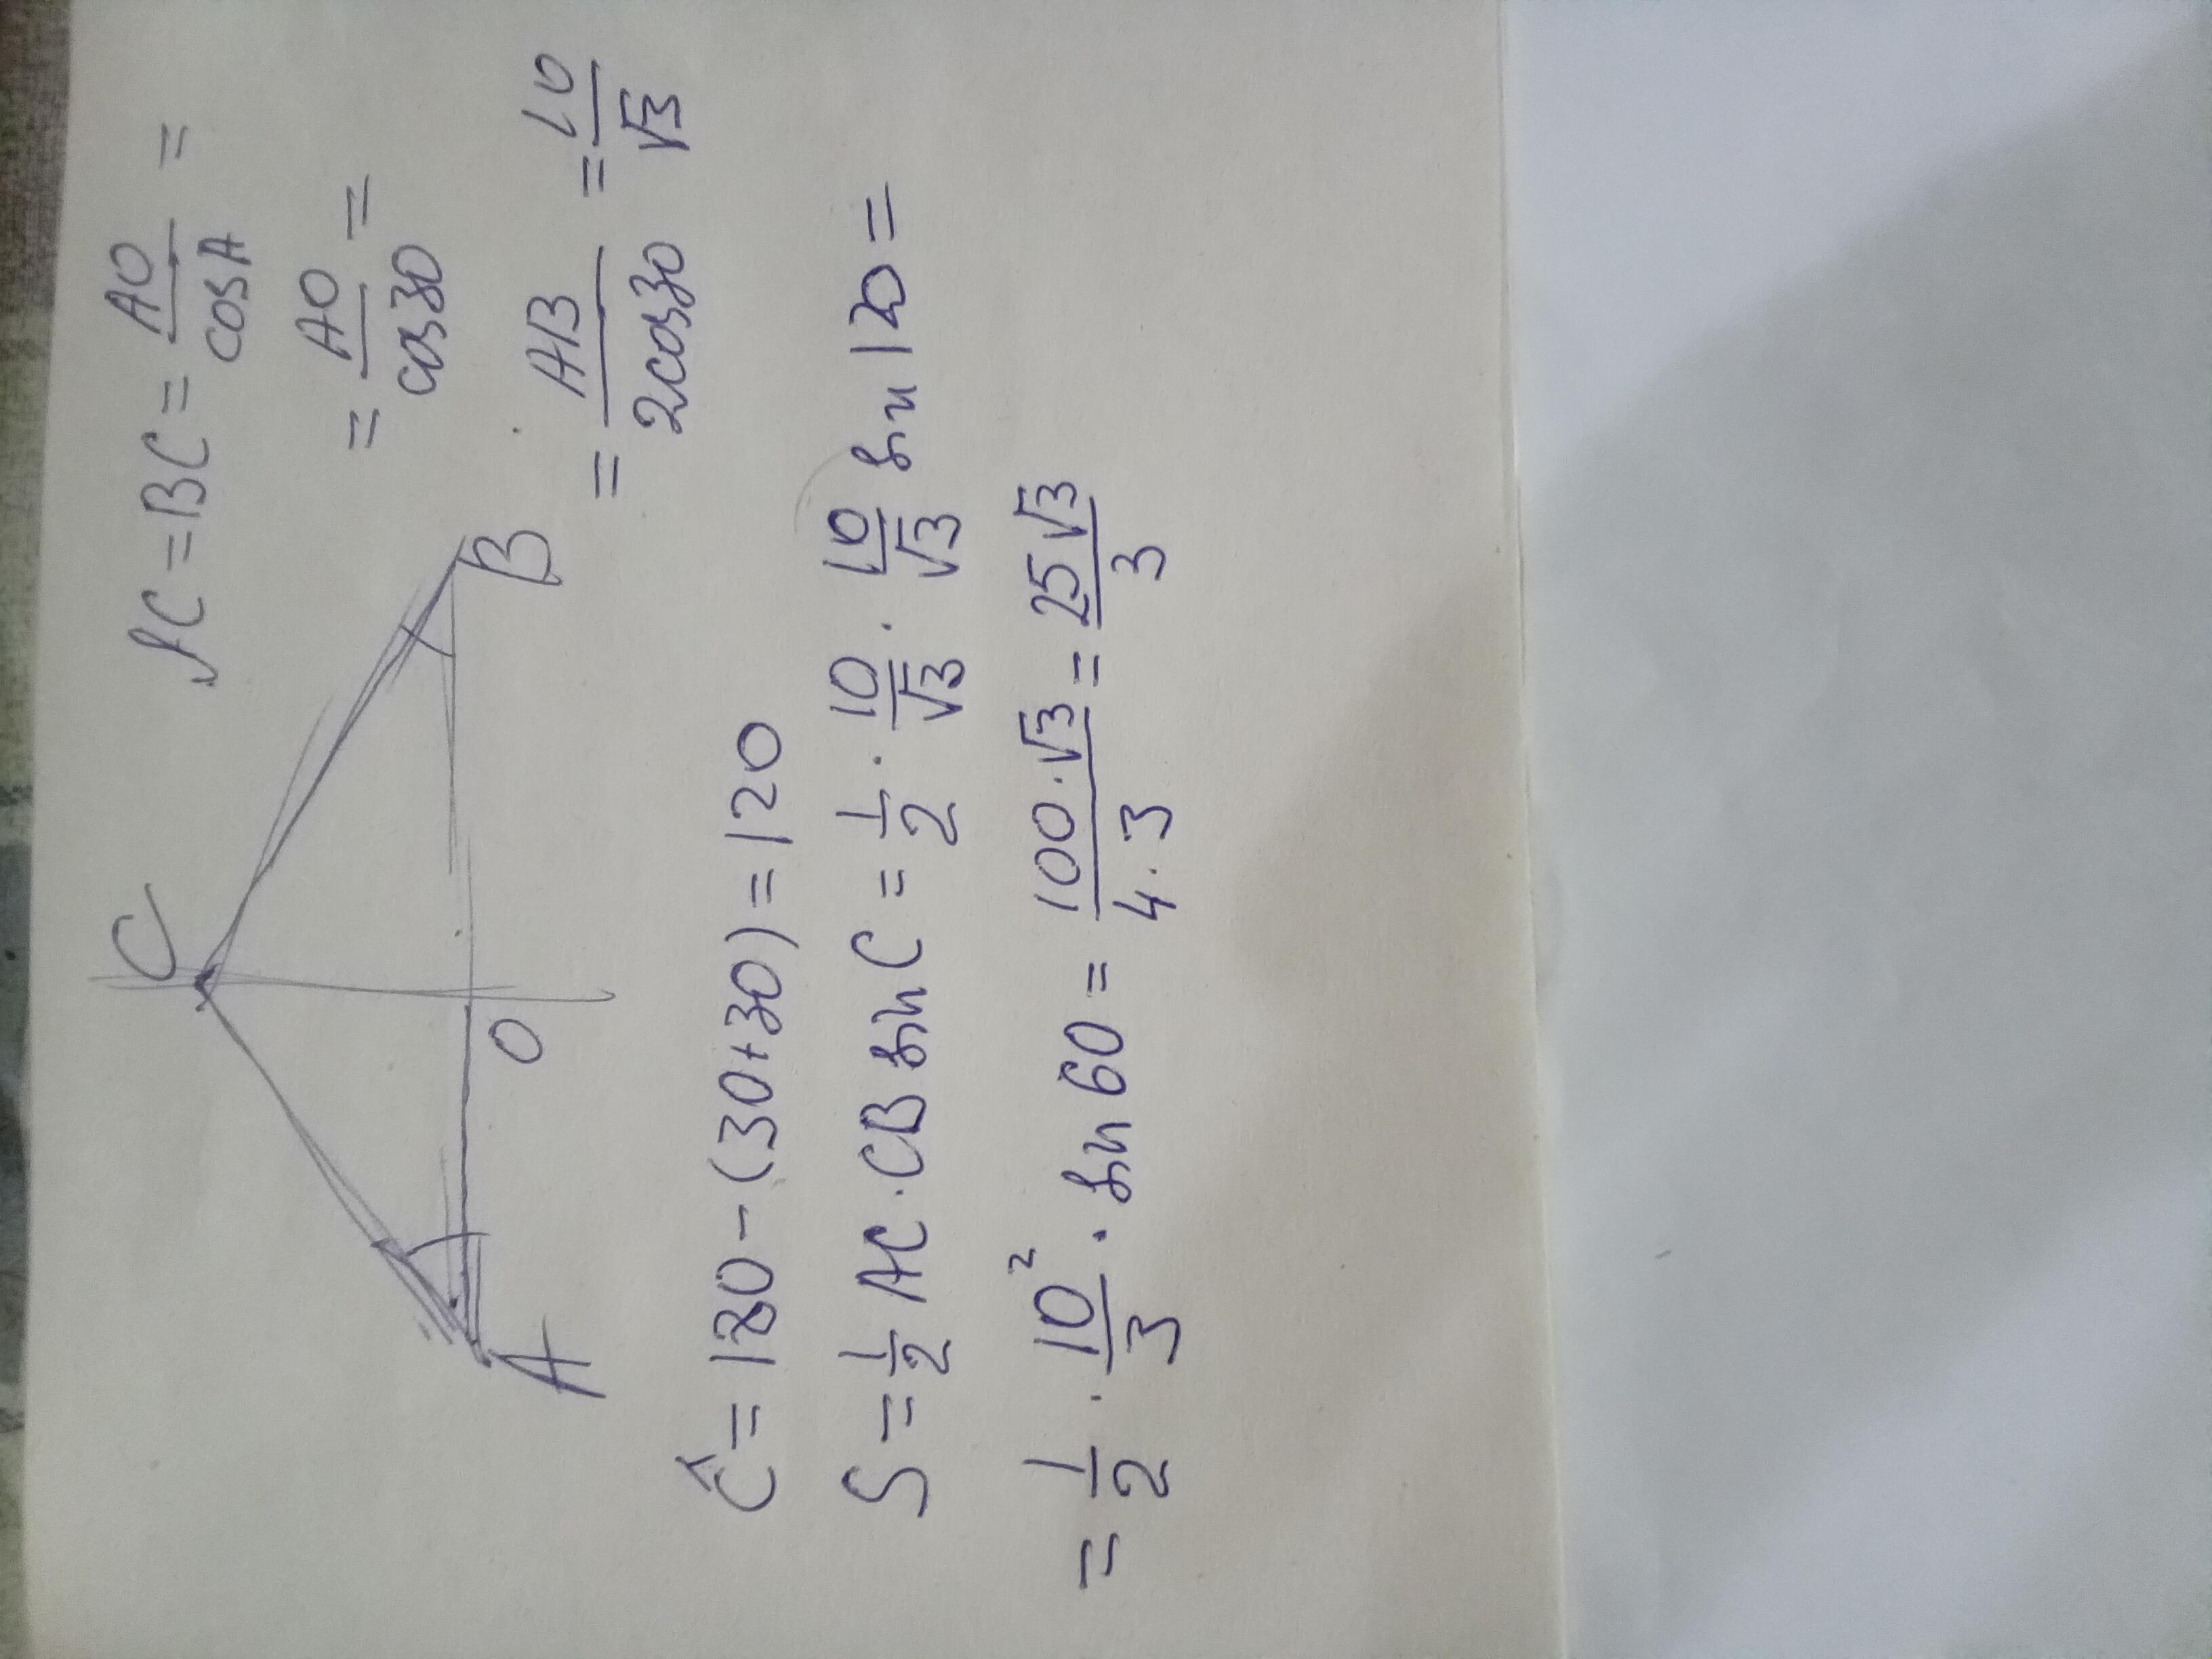 C
AC = BC = AO/cosA =
= AO/cos30 =
= AB/2cos30 = 10/√3
A
O
B
Ĉ = 180 - (30+30) = 120
S = 1/2 AC · CB sin C = 1/2 · 10/√3 · 10/√3 sin 120 =
= 1/2 · 10²/3 · sin 60 = 100·√3/4·3 = 25√3/3